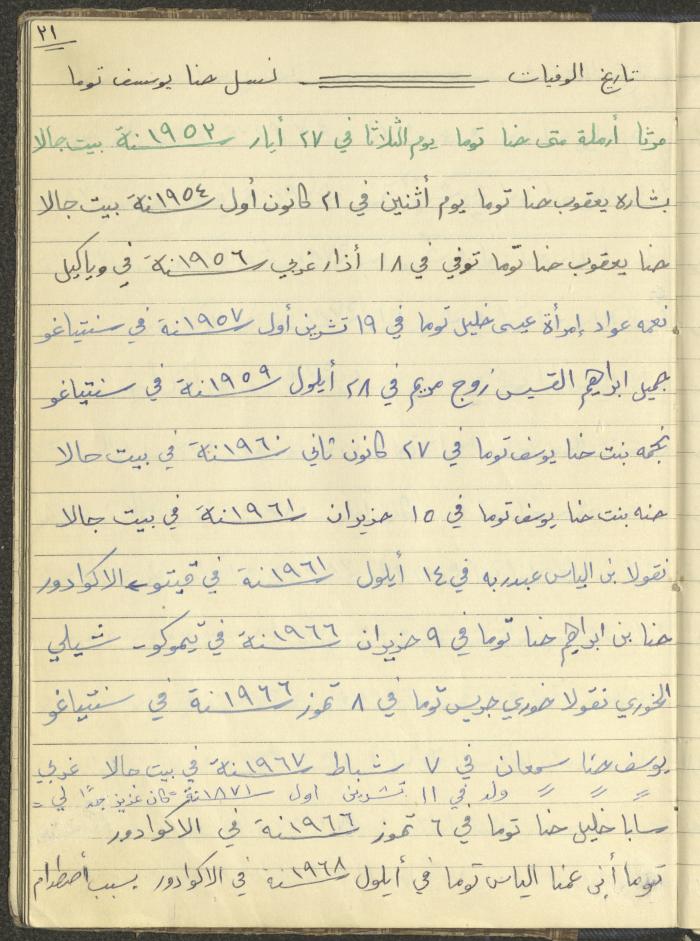 ٢١
تاريخ الوفيات نسل حنا يوسف توما
مرثا أرملة متى حنا توما يوم الثلاثا في ٢٧ أيار سنة ١٩٥٢ بيت جالا
بشاره يعقوب حنا توما يوم أثنين في ٢١ كانون أول سنة ١٩٥٤ بيت جالا
حنا يعقوب حنا توما توفي في ١٨ أذار غربي سنة ١٩٥٦ في وياكيل
نعمه عواد إمرأة عيسى خليل توما في ١٩ تشرين أول سنة ١٩٥٧ في سنتياغو
جميل ابراهيم القسيس زوج مريم في ٢٨ أيلول سنة ١٩٥٩ في سنتياغو
نجمه بنت حنا يوسف توما في ٢٧ كانون ثاني سنة ١٩٦٠ في بيت جالا
حنه بنت حنا يوسف توما في ١٥ حزيران سنة ١٩٦١ في بيت جالا
نقولا بن الياس عبدربه في ١٤ أيلول سنة ١٩٦١ في قيتو - الاكوادور
حنا بن ابراهيم حنا توما في ٩ حزيران سنة ١٩٦٦ في تيموكو - شيلي
الخوري نقولا خوري جريس توما في ٨ تموز سنة ١٩٦٦ في سنتياغو
يوسف حنا سمعان في ٧ شباط سنة ١٩٦٧ في بيت جالا غربي
〃 〃 〃 ولد في ١١ تشرين اول سنة ١٨٧١ كان عزيز جدًا لي =
سابا خليل حنا توما في ٦ تموز سنة ١٩٦٦ في الاكوادور
توما أبن عمنا الياس توما في أيلول سنة ١٩٦٨ في الاكوادور بسبب أصطدام